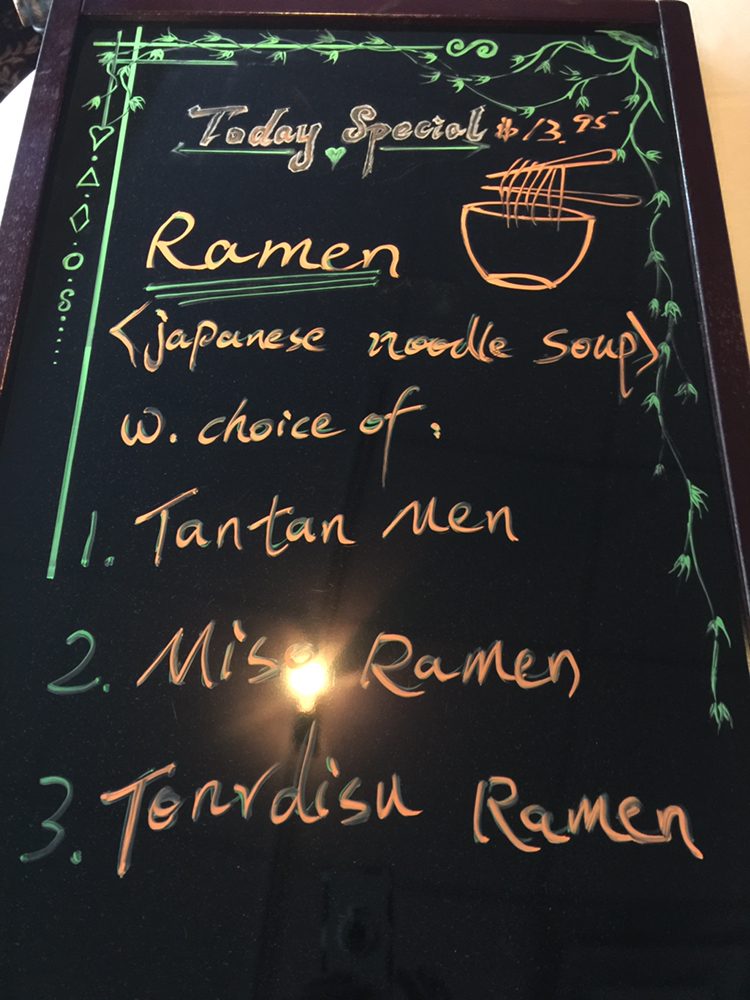 Today Special $13.95
Ramen
<japanese noodle soup>
w. choice of:
1. Tantan Men
2. Miso Ramen
3. Ramen